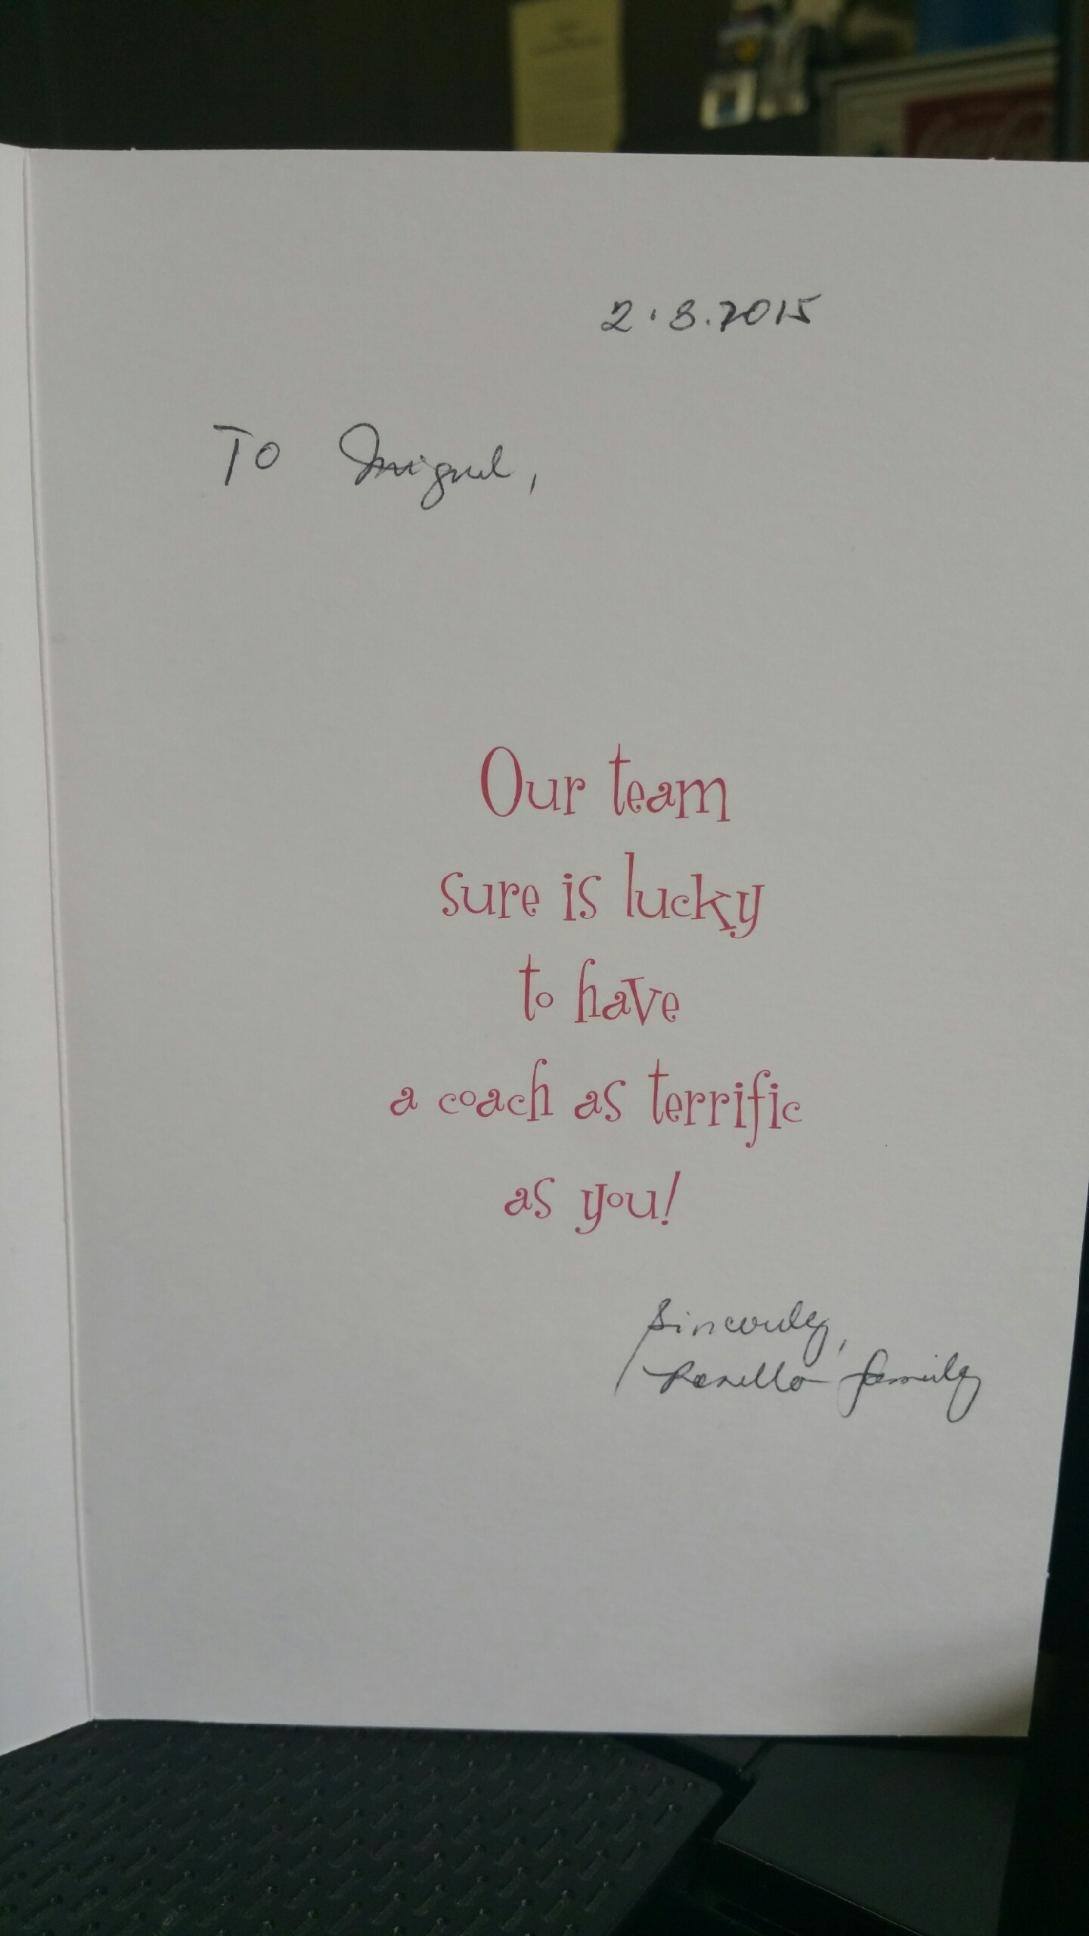 2.3.2015
To Miguel,
Our team
sure is lucky
to have
a coach as terrific
as you!
Sincerely,
family